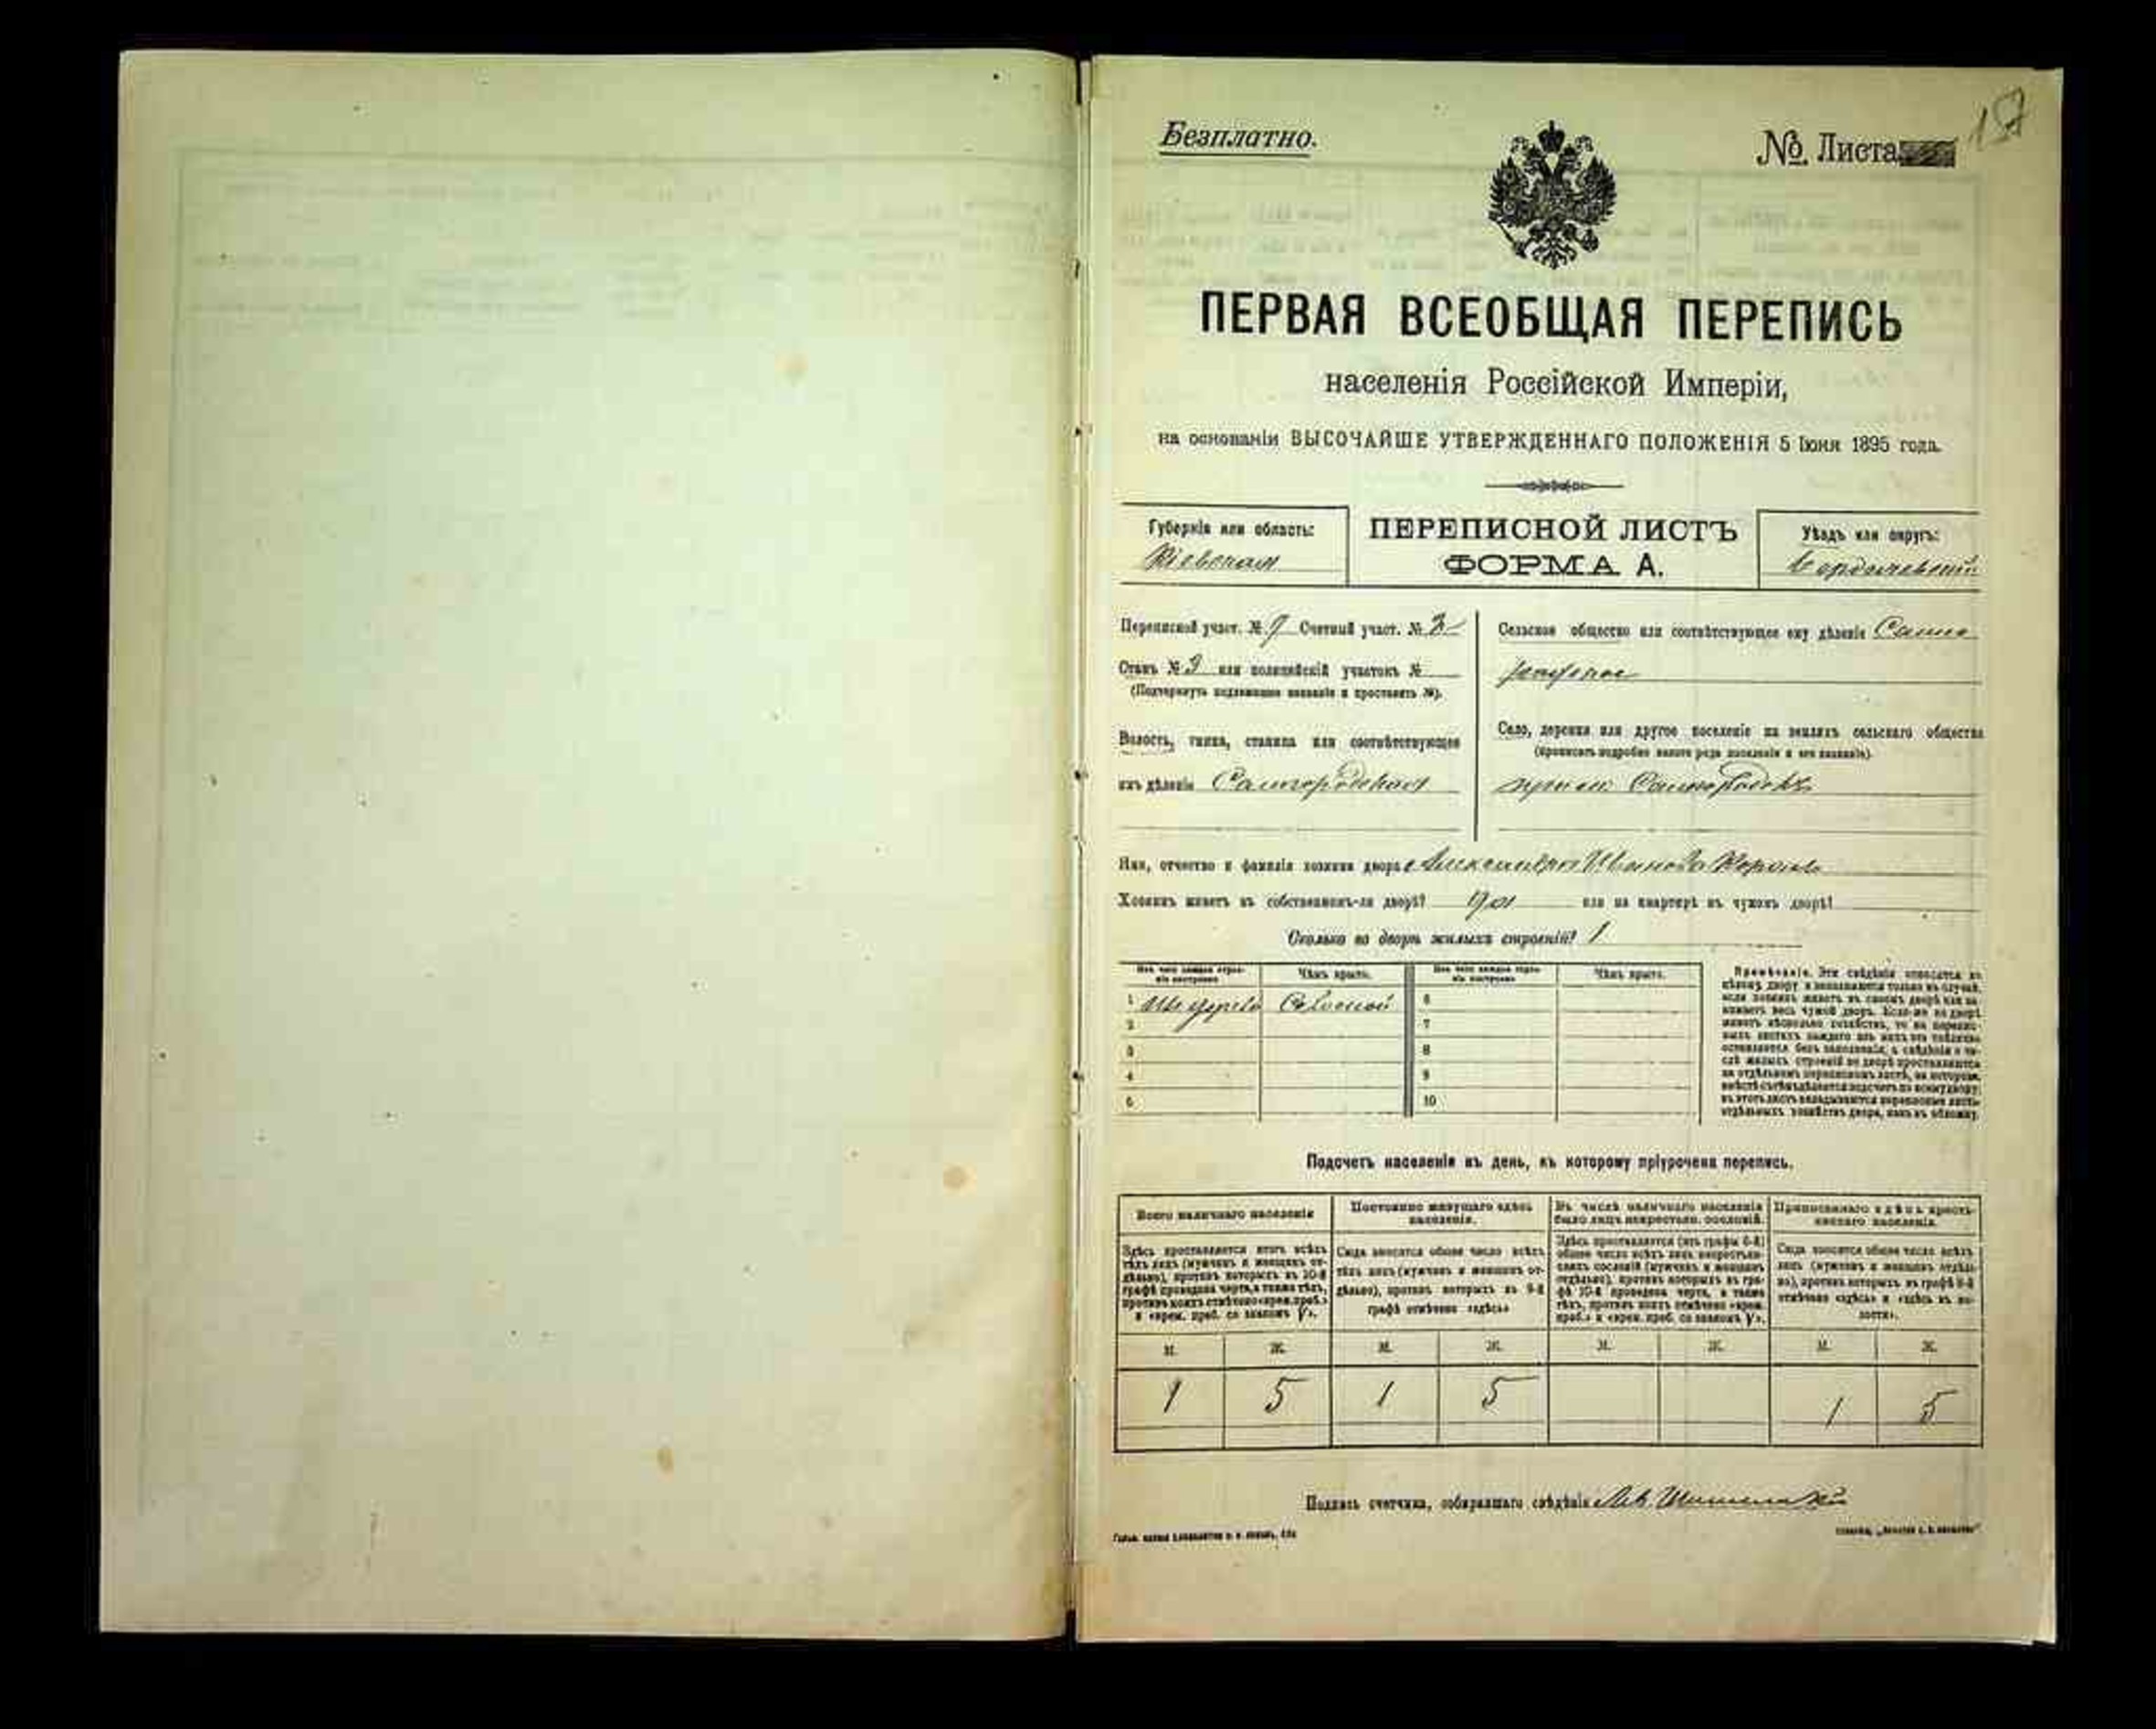 Безплатно.
№ Листа
ПЕРВАЯ ВСЕОБЩАЯ ПЕРЕПИСЬ
населенія Россійской Имперіи,
на основаніи ВЫСОЧАЙШЕ УТВЕРЖДЕННАГО ПОЛОЖЕНІЯ 5 Іюня 1895 года.
Губернія или область:
Кіевская
ПЕРЕПИСНОЙ ЛИСТЪ
ФОРМА А.
Уѣздъ или округъ:
Переписной участ. № 7 Счетный участ. №
Станъ № 3 или полицейскій участокъ №
(Подчеркнуть подлежащее названіе и проставить №).
Волость, гмина, станица или соотвѣтствующее
имъ дѣленіе Самгородская
Сельское общество или соотвѣтствующее ему дѣленіе
Село, деревня или другое поселеніе на земляхъ сельскаго общества
(прописать подробно какого рода поселеніе и его названіе).
Самгородокъ
Имя, отчество и фамилія хозяина двора Александра Иванова Король
Хозяинъ живетъ въ собственномъ-ли дворѣ? или на квартирѣ въ чужомъ дворѣ?
Сколько во дворѣ жилыхъ строеній? 1
Изъ чего каждое строеніе построено
Чѣмъ крыто.
Изъ чего каждое строеніе построено
Чѣмъ крыто.
1 Соломой 6
2 7
3 8
4 9
5 10
Примѣчаніе. Эти свѣдѣнія относятся къ
цѣлому двору и заполняются только въ случаѣ,
если хозяинъ живетъ въ своемъ дворѣ или за-
нимаетъ весь чужой дворъ. Если-же во дворѣ
живетъ нѣсколько хозяйствъ, то на перепис-
ныхъ листахъ каждаго изъ нихъ эти свѣдѣнія
оставляются безъ заполненія, а свѣдѣнія о чи-
слѣ жилыхъ строеній во дворѣ проставляются
на отдѣльномъ переписномъ листѣ, на которомъ
вмѣстѣ съ тѣмъ дѣлается подсчетъ по всему двору;
въ этотъ листъ вкладываются переписные листы
отдѣльныхъ хозяйствъ двора, какъ въ обложку.
Подсчетъ населенія въ день, къ которому пріурочена перепись.
Всего наличнаго населенія
Постоянно живущаго здѣсь
населенія.
Въ числѣ наличнаго населенія
было лицъ некрестьян. сословій.
Приписаннаго здѣсь кресть-
янскаго населенія.
Здѣсь проставляется итогъ всѣхъ
тѣхъ лицъ (мужчинъ и женщинъ от-
дѣльно), противъ которыхъ въ 10-й
графѣ проведена черта, а также тѣхъ,
противъ коихъ отмѣчено «врем. преб.»
и «врем. преб. со знакомъ V».
Сюда вносится общее число всѣхъ
тѣхъ лицъ (мужчинъ и женщинъ от-
дѣльно), противъ которыхъ въ 9-й
графѣ отмѣчено «здѣсь»
Здѣсь проставляется (изъ графы 6-й)
общее число всѣхъ лицъ некрестьян-
скихъ сословій (мужчинъ и женщинъ
отдѣльно), противъ которыхъ въ гра-
фѣ 10-й проведена черта, а также
тѣхъ, противъ коихъ отмѣчено «врем.
преб.» и «врем. преб. со знакомъ V».
Сюда вносится общее число всѣхъ
лицъ (мужчинъ и женщинъ отдѣль-
но), противъ которыхъ въ графѣ 8-й
отмѣчено «здѣсь» и «здѣсь въ во-
лости».
М. Ж. М. Ж. М. Ж. М. Ж.
1 5 1 5 1 5
Подпись счетчика, собиравшаго свѣдѣнія